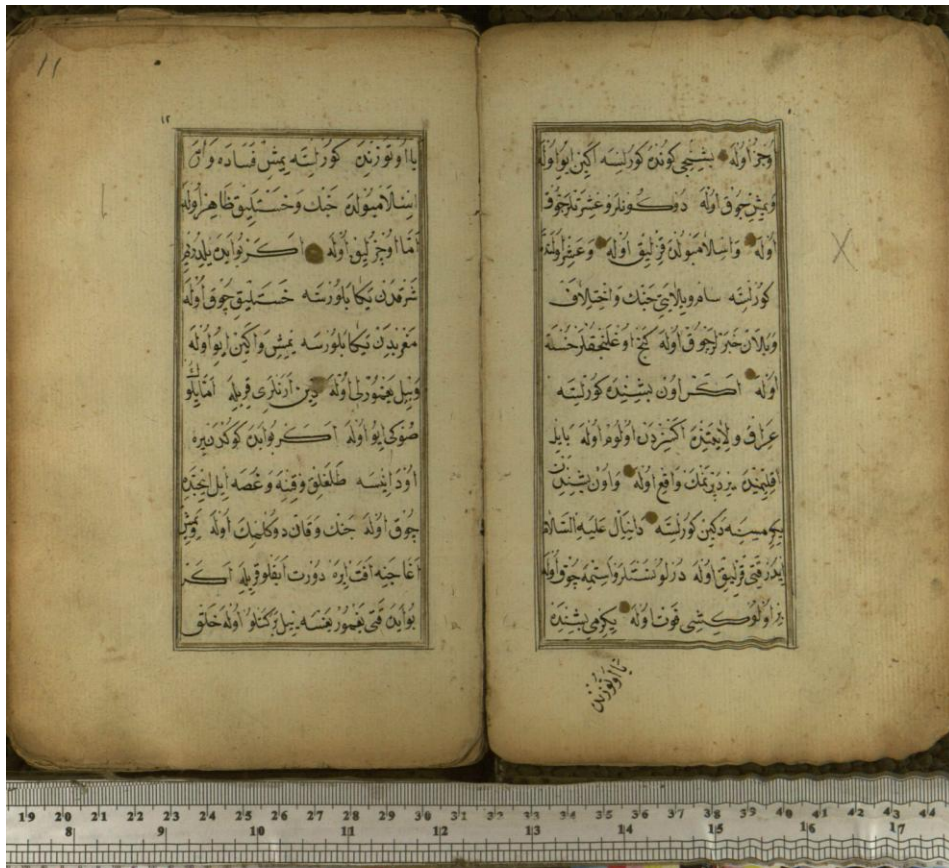 اوجز اوله بشنجى كوندن كورلسه اكين ايو اوله
ويمش چوق اوله دوكونلر وعشرتلر چوق
اوله واسلامبولده قزليق اوله وعشر اولنده
كورلسه سام وبلايتى جنك واختلاف
ويلان خبرلر چوق اوله كنج اوغلنجقلر خسته
اوله اكر اون بشنده كورلسه
عراق ولايتنده اكثردن اولوم اوله بابل
اقليمنده بزدپرنمك واقع اوله واون بشندن
يكرمسينه دكين كورلسه دانيال عليه السلام
ايدر قتى قزليق اوله درلو نسنلر واستمه چوق اوله
بر اولو كشى فوت اوله يكرمى بشنده
يا اوتوزنده
١٢
11
يا اوتوزنده كورلسه يمش فساده وارق
اسلامبولده جنك وخستهليق ظاهر اوله
اما اوجزليق اوله اكر بو آيده يلدرم
شرقدن يكا بلورسه خستهليق چوق اوله
مغربدن يكا بلورسه يمش واكين ايو اوله
وييل يغمورلى اوله دين ارنلرى قريله اما ييلو
صوكى ايو اوله اكر بو آيده كوكدن يره
اود اينسه ظلملق وفتنه وغصه ايل ايچنده
چوق اوله جنك وقان دوكلمك اوله ويمش
اغاجنه افت ايره دورت ايقلو قريله اكر
بو آيده قتى يغمور يغسه ييل بركتلو اوله خلق
19 20 21 22 23 24 25 26 27 28 29 30 31 32 33 34 35 36 37 38 39 40 41 42 43 44
8 9 10 11 12 13 14 15 16 17